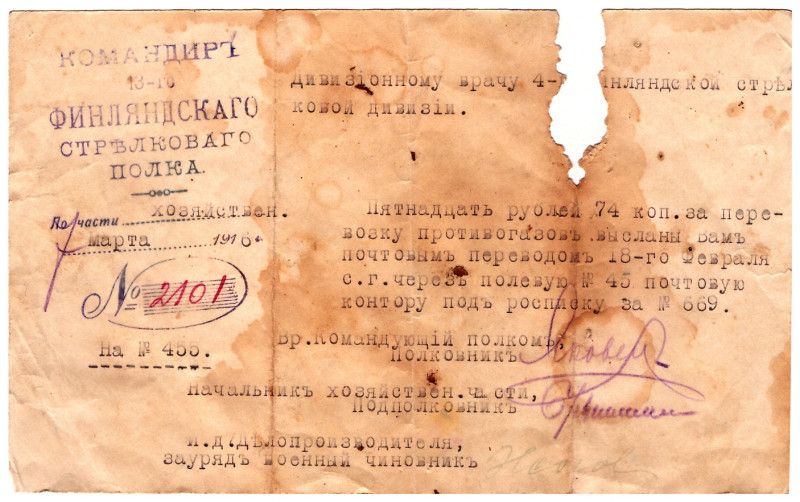 КОМАНДИРЪ
13-го
ФИНЛЯНДСКАГО
СТРѢЛКОВАГО
ПОЛКА.
По части хозяйствен.
7 марта 1916 г.
№ 2101
На № 455.
Дивизіонному врачу 4- инляндской стрѣл
ковой дивизіи.
Пятнадцать рублей 74 коп. за пере-
возку противогазовъ высланы Вамъ
почтовымъ переводомъ 18-го Февраля
с.г. черезъ полевую № 45 почтовую
контору подъ росписку за № 669.
Вр. Командующій полкомъ,
Полковникъ
Начальникъ хозяйствен. части,
Подполковникъ
И.д. Дѣлопроизводителя,
заурядъ военный чиновникъ